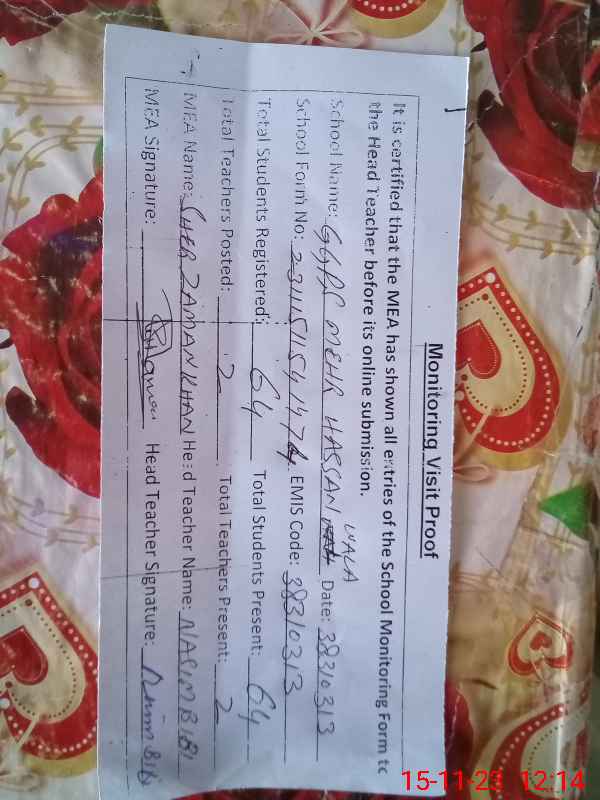 Monitoring Visit Proof
It is certified that the MEA has shown all entries of the School Monitoring Form to
the Head Teacher before its online submission.
School Name: GGPS MEHR HASSAN WALA Date: 38310313
School Form No: EMIS Code: 38310313
Total Students Registered: 64 Total Students Present: 64
Total Teachers Posted: 2 Total Teachers Present: 2
MEA Name: SHER ZAMAN KHAN Head Teacher Name: NASIM BIBI
MEA Signature: Head Teacher Signature:
15-11-23 12:14